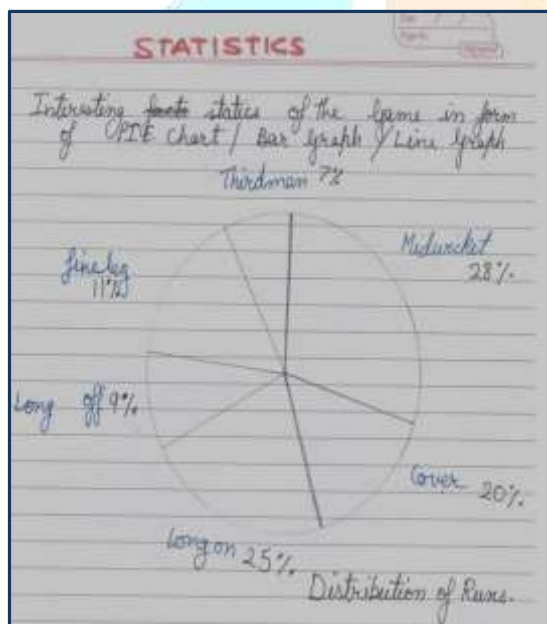 STATISTICS
Interesting statics of the Game in form
of PIE Chart / Bar Graph / Line Graph
Thirdman 7%
Midwicket
28%.
fine leg
11%
Long off 9%.
Cover 20%.
Long on 25%.
Distribution of Runs.